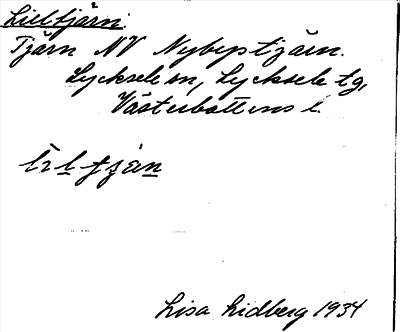 Lilltjärn.
Tjärn NV Nybystjärn.
Lycksele sn, Lycksele tg,
Västerbottens l.
Lisa Lidberg 1934